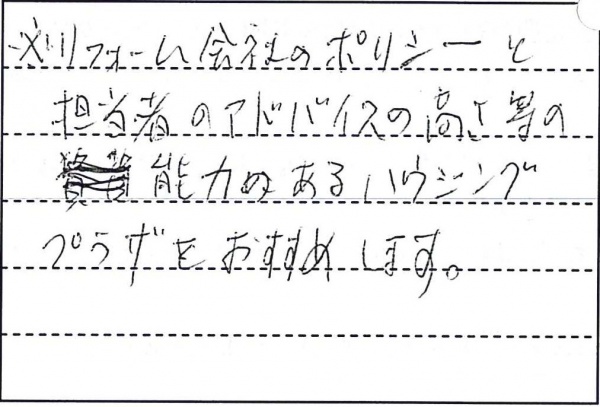 ※リフォーム会社のポリシーと
担当者のアドバイスの高さ等の
能力のあるハウジング
プラザをおすすめします。